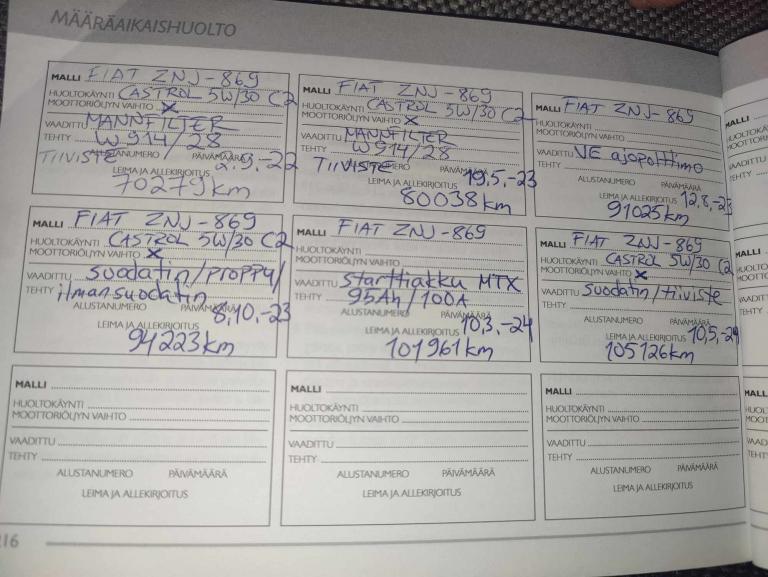 MÄÄRÄAIKAISHUOLTO
MALLI FIAT ZNJ-869
HUOLTOKÄYNTI CASTROL 5W/30 C2
MOOTTORIÖLJYN VAIHTO X
VAADITTU MANNFILTER
TEHTY W914/28
TIIVISTE ALUSTANUMERO PÄIVÄMÄÄRÄ 2.9.-22
LEIMA JA ALLEKIRJOITUS
70279km
MALLI FIAT ZNJ-869
HUOLTOKÄYNTI CASTROL 5W/30 C2
MOOTTORIÖLJYN VAIHTO X
VAADITTU MANNFILTER
TEHTY W914/28
TIIVISTE ALUSTANUMERO PÄIVÄMÄÄRÄ
LEIMA JA ALLEKIRJOITUS 19.5.-23
80038km
MALLI FIAT ZNJ-869
HUOLTOKÄYNTI
MOOTTORIÖLJYN VAIHTO
VAADITTU VE ajopolttimo
TEHTY
ALUSTANUMERO PÄIVÄMÄÄRÄ
LEIMA JA ALLEKIRJOITUS 12.8.-23
91025km
MALLI FIAT ZNJ-869
HUOLTOKÄYNTI CASTROL 5W/30 C2
MOOTTORIÖLJYN VAIHTO X
VAADITTU suodatin/proppu/
TEHTY ilmansuodatin
ALUSTANUMERO PÄIVÄMÄÄRÄ 8.10.-23
LEIMA JA ALLEKIRJOITUS
94223km
MALLI FIAT ZNJ-869
HUOLTOKÄYNTI
MOOTTORIÖLJYN VAIHTO
VAADITTU starttiakku MTX
TEHTY 95Ah/100A
ALUSTANUMERO PÄIVÄMÄÄRÄ
LEIMA JA ALLEKIRJOITUS 10.3.-24
101961km
MALLI FIAT ZNJ-869
HUOLTOKÄYNTI CASTROL 5W/30 C2
MOOTTORIÖLJYN VAIHTO X
VAADITTU suodatin/tiiviste
TEHTY
ALUSTANUMERO PÄIVÄMÄÄRÄ
LEIMA JA ALLEKIRJOITUS 10.5.-24
105126km
MALLI
HUOLTOKÄYNTI
MOOTTORIÖLJYN VAIHTO
VAADITTU
TEHTY
ALUSTANUMERO PÄIVÄMÄÄRÄ
LEIMA JA ALLEKIRJOITUS
MALLI
HUOLTOKÄYNTI
MOOTTORIÖLJYN VAIHTO
VAADITTU
TEHTY
ALUSTANUMERO PÄIVÄMÄÄRÄ
LEIMA JA ALLEKIRJOITUS
MALLI
HUOLTOKÄYNTI
MOOTTORIÖLJYN VAIHTO
VAADITTU
TEHTY
ALUSTANUMERO PÄIVÄMÄÄRÄ
LEIMA JA ALLEKIRJOITUS